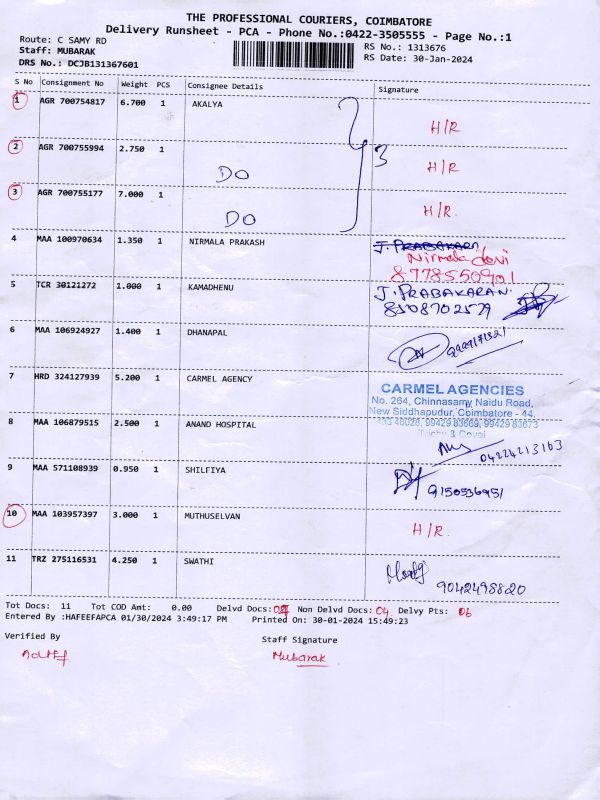 THE PROFESSIONAL COURIERS, COIMBATORE
Delivery Runsheet - PCA - Phone No.:0422-3505555 - Page No.:1
Route: C SAMY RD
RS No.: 1313676
Staff: MUBARAK
RS Date: 30-Jan-2024
DRS No.: DCJB131367601
S No Consignment No Weight PCS Consignee Details Signature
1 AGR 700754817 6.700 1 AKALYA H/R
2 AGR 700755994 2.750 1 DO H/R
3
3 AGR 700755177 7.000 1 DO H/R.
4 MAA 100970634 1.350 1 NIRMALA PRAKASH J. PRABAKARAN
Nirmala devi
8778550901
5 TCR 30121272 1.000 1 KAMADHENU J. PRABAKARAN.
8508702579
6 MAA 106924927 1.400 1 DHANAPAL
7 HRD 324127939 5.200 1 CARMEL AGENCY CARMEL AGENCIES
No. 264, Chinnasamy Naidu Road,
New Siddhapudur, Coimbatore - 44,
99429 83669, 99429 83673
8 MAA 106879515 2.500 1 ANAND HOSPITAL 04224213163
9 MAA 571108939 0.950 1 SHILFIYA 9150536951
10 MAA 103957397 3.000 1 MUTHUSELVAN H/R.
11 TRZ 275116531 4.250 1 SWATHI 9042498820
Tot Docs: 11 Tot COD Amt: 0.00 Delvd Docs: 07 Non Delvd Docs: 04 Delvy Pts: 06
Entered By :HAFEEFAPCA 01/30/2024 3:49:17 PM Printed On: 30-01-2024 15:49:23
Verified By Staff Signature
Mubarak